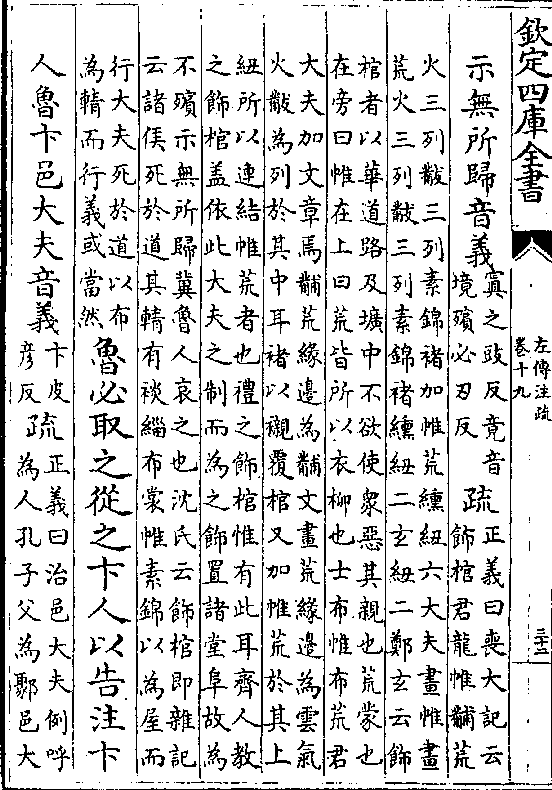 欽定四庫全書
左傳注疏
卷十九
三十二
示無所歸音義
寘之豉反竟音
境殯必刃反
疏
正義曰喪大記云
飾棺君龍帷黼荒
火三列黻三列素錦褚加帷荒纁紐六大夫畫帷畫
荒火三列黻三列素錦褚纁紐二玄紐二鄭玄云飾
棺者以華道路及壙中不欲使衆惡其親也荒蒙也
在旁曰帷在上曰荒皆所以衣柳也士布帷布荒君
大夫加文章焉黼荒緣邊為黼文畫荒緣邊為雲氣
火黻為列於其中耳褚以襯覆棺又加帷荒於其上
紐所以連結帷荒者也禮之飾棺惟有此耳齊人教
之飾棺盖依此大夫之制而為之飾置諸堂阜故為
不殯示無所歸冀魯人哀之也沈氏云飾棺即雜記
云諸侯死於道其輤有裧緇布裳帷素錦以為屋而
行大夫死於道以布
為輤而行義或當然
魯必取之從之卞人以告注卞
人魯卞邑大夫音義
卞皮
彥反
疏
正義曰治邑大夫例呼
為人孔子父為鄹邑大